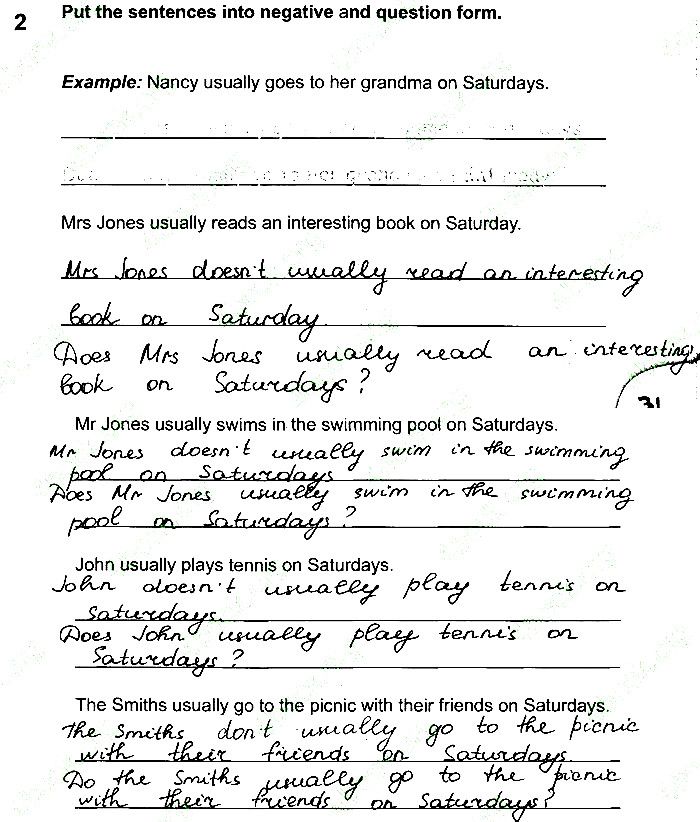 2 Put the sentences into negative and question form.
Example: Nancy usually goes to her grandma on Saturdays.
Mrs Jones usually reads an interesting book on Saturday.
Mrs Jones doesn't usually read an interesting
book on Saturday.
Does Mrs Jones usually read an interesting
book on Saturdays?
31
Mr Jones usually swims in the swimming pool on Saturdays.
Mr Jones doesn't usually swim in the swimming
pool on Saturdays
Does Mr Jones usually swim in the swimming
pool on Saturdays?
John usually plays tennis on Saturdays.
John doesn't usually play tennis on
Saturdays.
Does John usually play tennis on
Saturdays?
The Smiths usually go to the picnic with their friends on Saturdays.
The Smiths don't usually go to the picnic
with their friends on Saturdays.
Do the Smiths usually go to the picnic
with their friends on Saturdays?